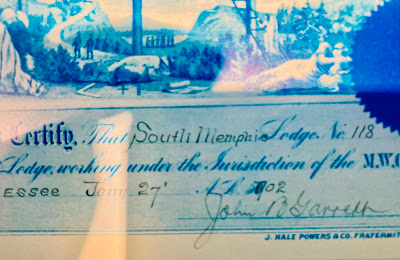 Certify, That South Memphis Lodge, No. 118
Lodge, working under the Jurisdiction of the M.W.
essee Jany 27' 1902
John B Garrett
J. HALE POWERS & CO. FRATERNIT